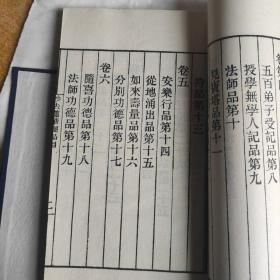 五百弟子受記品第八
授學無學人記品第九
法師品第十
見寶塔品第十一
持品第十三
卷五
安樂行品第十四
從地涌出品第十五
如來壽量品第十六
分別功德品第十七
卷六
隨喜功德品第十八
法師功德品第十九